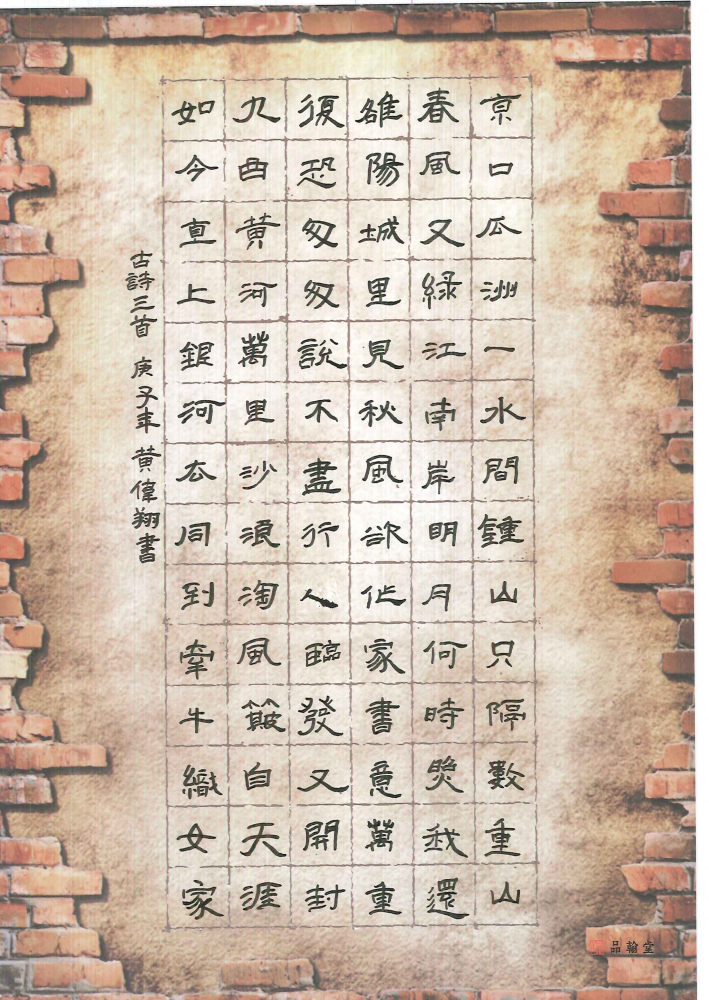 京口瓜洲一水間鍾山只隔數重山
春風又綠江南岸明月何時照我還
雒陽城里見秋風欲作家書意萬重
復恐匆匆說不盡行人臨發又開封
九曲黃河萬里沙浪淘風簸自天涯
如今直上銀河去同到牽牛織女家
古詩三首 庚子年 黃偉翔書
品翰堂